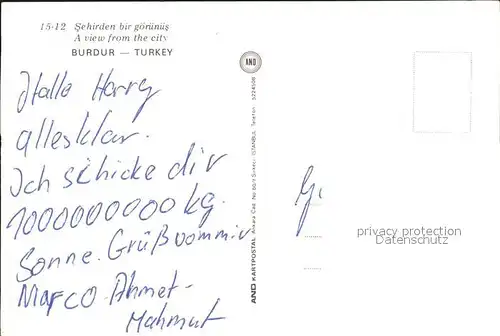 15-12 Şehirden bir görünüş
A view from the city
BURDUR — TURKEY
AND
Hallo Harry
allesklar.
Ich schicke dir
1000000000 kg.
Sonne. Grüß vommir
Marco. Ahmet-
Mahmut
AND KARTPOSTAL Ankara Cad. No: 60/1 Sirkeci - İSTANBUL Telefon: 5224508
privacy protection
Datenschutz